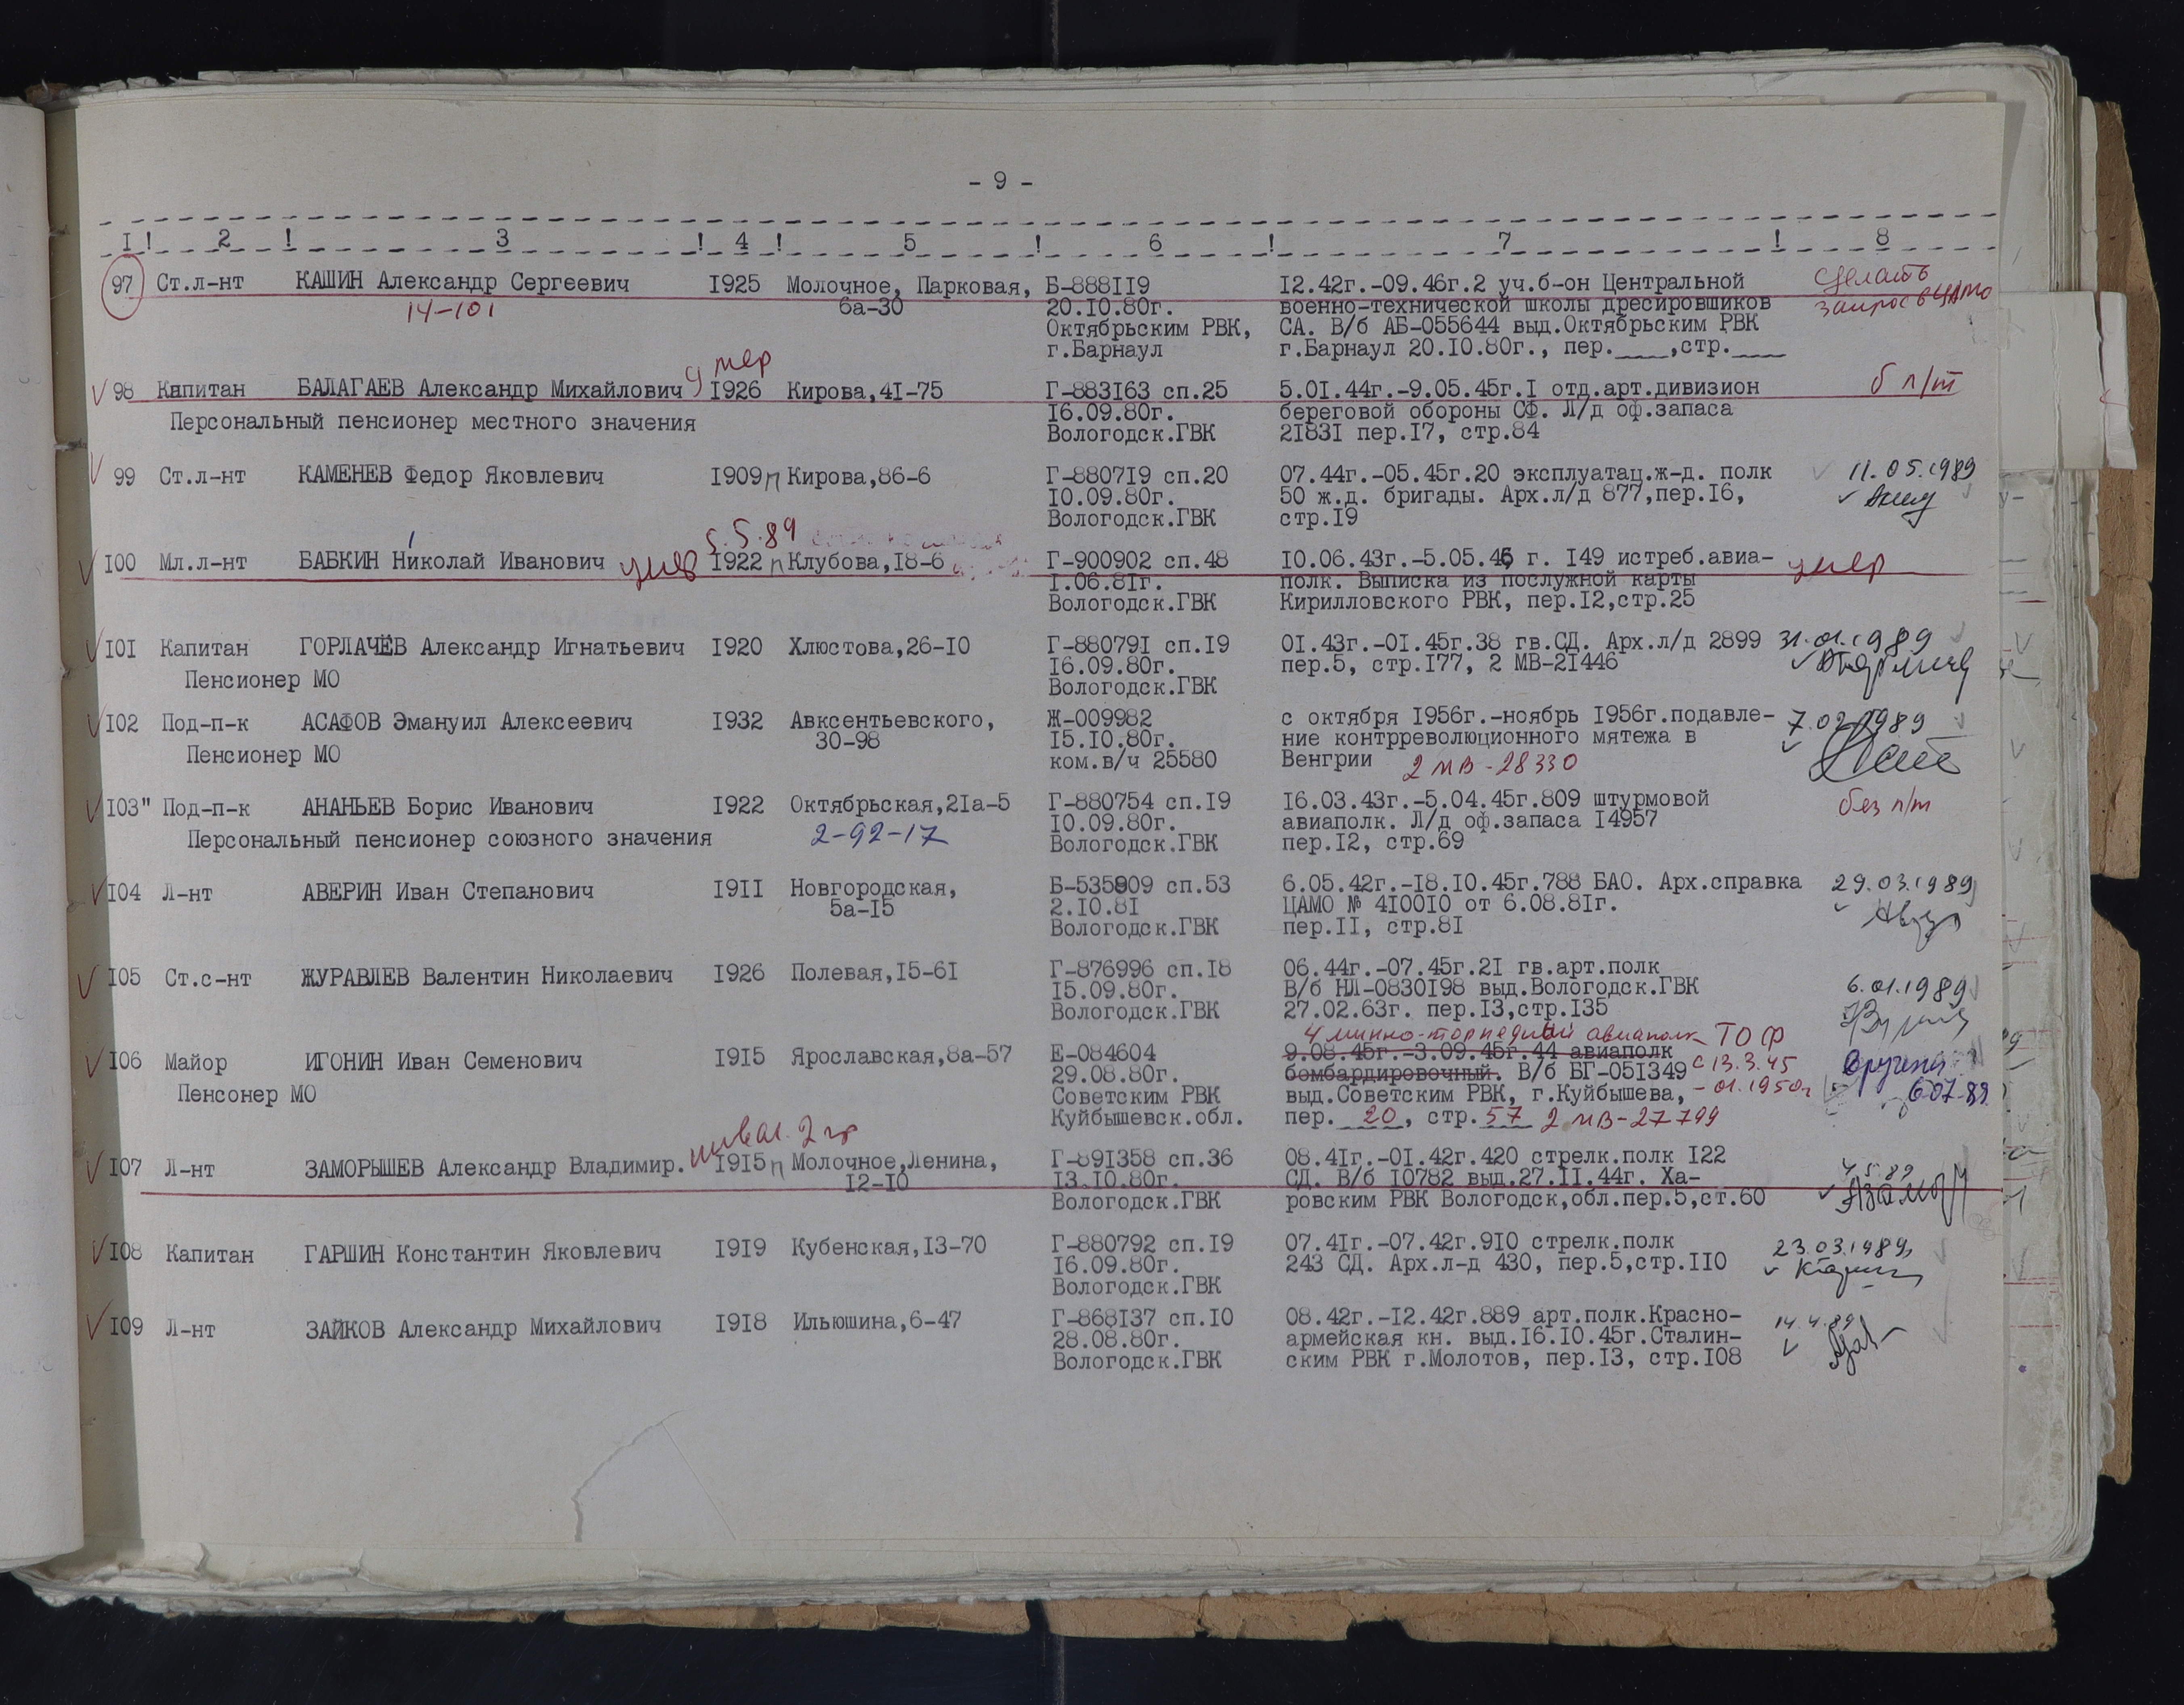 - 9 -
I ! 2 ! 3 ! 4 ! 5 ! 6 ! 7 ! 8
97 Ст.л-нт КАШИН Александр Сергеевич 1925 Молочное, Парковая, Б-888119 12.42г.-09.46г.2 уч.б-он Центральной сделать
14-101 6а-30 20.10.80г. военно-технической школы дресировщиков запрос в ЦАМО
Октябрьским РВК, СА. В/б АБ-055644 выд.Октябрьским РВК
г.Барнаул г.Барнаул 20.10.80г., пер.___,стр.___
умер
98 Капитан БАЛАГАЕВ Александр Михайлович 1926 Кирова,41-75 Г-883163 сп.25 5.01.44г.-9.05.45г.1 отд.арт.дивизион б п/т
Персональный пенсионер местного значения 16.09.80г. береговой обороны СФ. Л/д оф.запаса
Вологодск.ГВК 21831 пер.17, стр.84
99 Ст.л-нт КАМЕНЕВ Федор Яковлевич 1909 п Кирова,86-6 Г-880719 сп.20 07.44г.-05.45г.20 эксплуатац.ж-д. полк 11.05.1989
10.09.80г. 50 ж.д. бригады. Арх.л/д 877,пер.16,
Вологодск.ГВК стр.19
5.5.89
100 Мл.л-нт БАБКИН Николай Иванович умер 1922 п Клубова,18-6 Г-900902 сп.48 10.06.43г.-5.05.45 г. 149 истреб.авиа- умер
1.06.81г. полк. Выписка из послужной карты
Вологодск.ГВК Кирилловского РВК, пер.12,стр.25
101 Капитан ГОРЛАЧЁВ Александр Игнатьевич 1920 Хлюстова,26-10 Г-880791 сп.19 01.43г.-01.45г.38 гв.СД. Арх.л/д 2899 31.01.1989
Пенсионер МО 16.09.80г. пер.5, стр.177, 2 МВ-21446
Вологодск.ГВК
102 Под-п-к АСАФОВ Эмануил Алексеевич 1932 Авксентьевского, Ж-009982 с октября 1956г.-ноябрь 1956г.подавле- 7.02.1989
Пенсионер МО 30-98 15.10.80г. ние контрреволюционного мятежа в
ком.в/ч 25580 Венгрии 2 МВ-28330
103" Под-п-к АНАНЬЕВ Борис Иванович 1922 Октябрьская,21а-5 Г-880754 сп.19 16.03.43г.-5.04.45г.809 штурмовой без п/т
Персональный пенсионер союзного значения 2-92-17 10.09.80г. авиаполк. Л/д оф.запаса 14957
Вологодск.ГВК пер.12, стр.69
104 Л-нт АВЕРИН Иван Степанович 1911 Новгородская, Б-535909 сп.53 6.05.42г.-18.10.45г.788 БАО. Арх.справка 29.03.1989
5а-15 2.10.81 ЦАМО № 410010 от 6.08.81г.
Вологодск.ГВК пер.11, стр.81
105 Ст.с-нт ЖУРАВЛЕВ Валентин Николаевич 1926 Полевая,15-61 Г-876996 сп.18 06.44г.-07.45г.21 гв.арт.полк
15.09.80г. В/б НЛ-0830198 выд.Вологодск.ГВК 6.01.1989
Вологодск.ГВК 27.02.63г. пер.13,стр.135
4 минно-торпедный авиаполк ТОФ
106 Майор ИГОНИН Иван Семенович 1915 Ярославская,8а-57 Е-084604 9.08.45г.-3.09.45г.44 авиаполк с 13.3.45 Вручена
Пенсонер МО 29.08.80г. бомбардировочный. В/б БГ-051349 - 01.1950г 6.07.89
Советским РВК выд.Советским РВК, г.Куйбышева,
Куйбышевск.обл. пер. 20, стр.57 2 МВ-27799
инвал. 2 гр
107 Л-нт ЗАМОРЫШЕВ Александр Владимир. 1915 п Молочное,Ленина, Г-891358 сп.36 08.41г.-01.42г.420 стрелк.полк 122 4.5.89
12-10 13.10.80г. СД. В/б 10782 выд.27.11.44г. Ха-
Вологодск.ГВК ровским РВК Вологодск,обл.пер.5,ст.60
108 Капитан ГАРШИН Константин Яковлевич 1919 Кубенская,13-70 Г-880792 сп.19 07.41г.-07.42г.910 стрелк.полк 23.03.1989
16.09.80г. 243 СД. Арх.л-д 430, пер.5,стр.110
Вологодск.ГВК
109 Л-нт ЗАЙКОВ Александр Михайлович 1918 Ильюшина,6-47 Г-868137 сп.10 08.42г.-12.42г.889 арт.полк.Красно- 14.4.89
28.08.80г. армейская кн. выд.16.10.45г.Сталин-
Вологодск.ГВК ским РВК г.Молотов, пер.13, стр.108